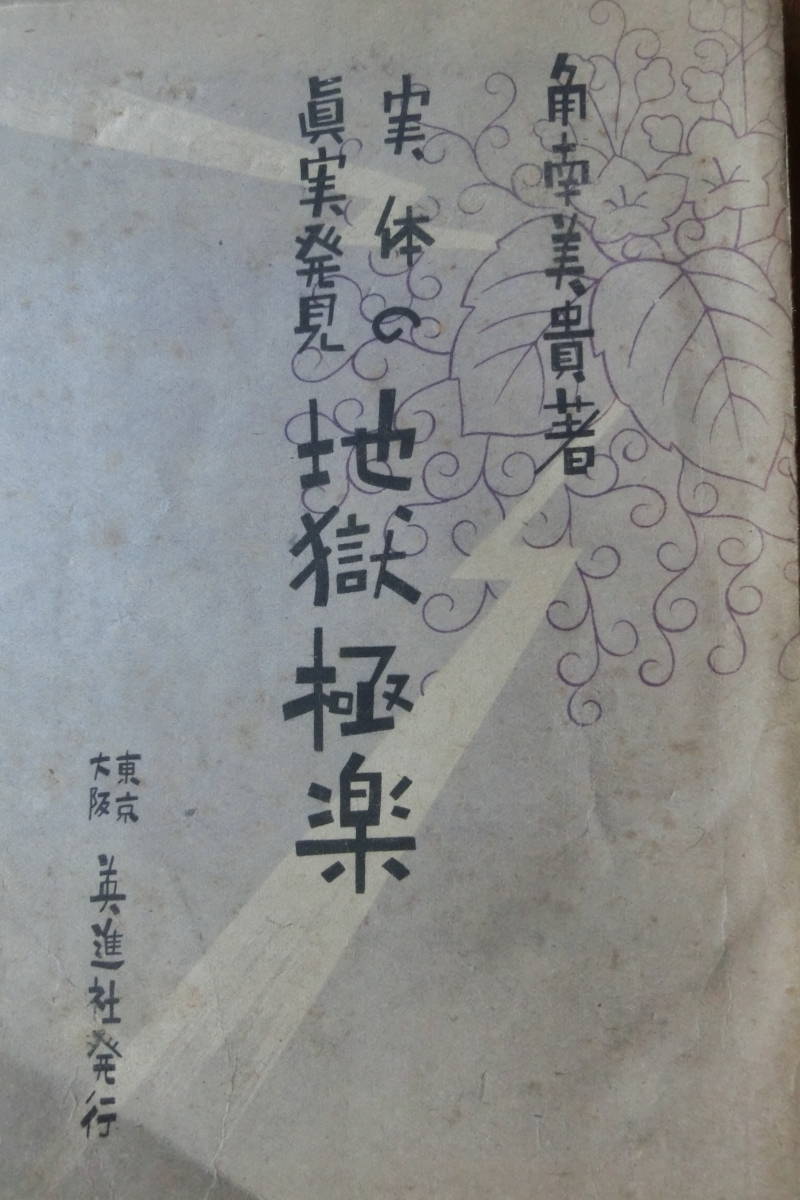 角南美貴著
実体の
眞実発見
地獄極楽
東京
大阪
英進社発行